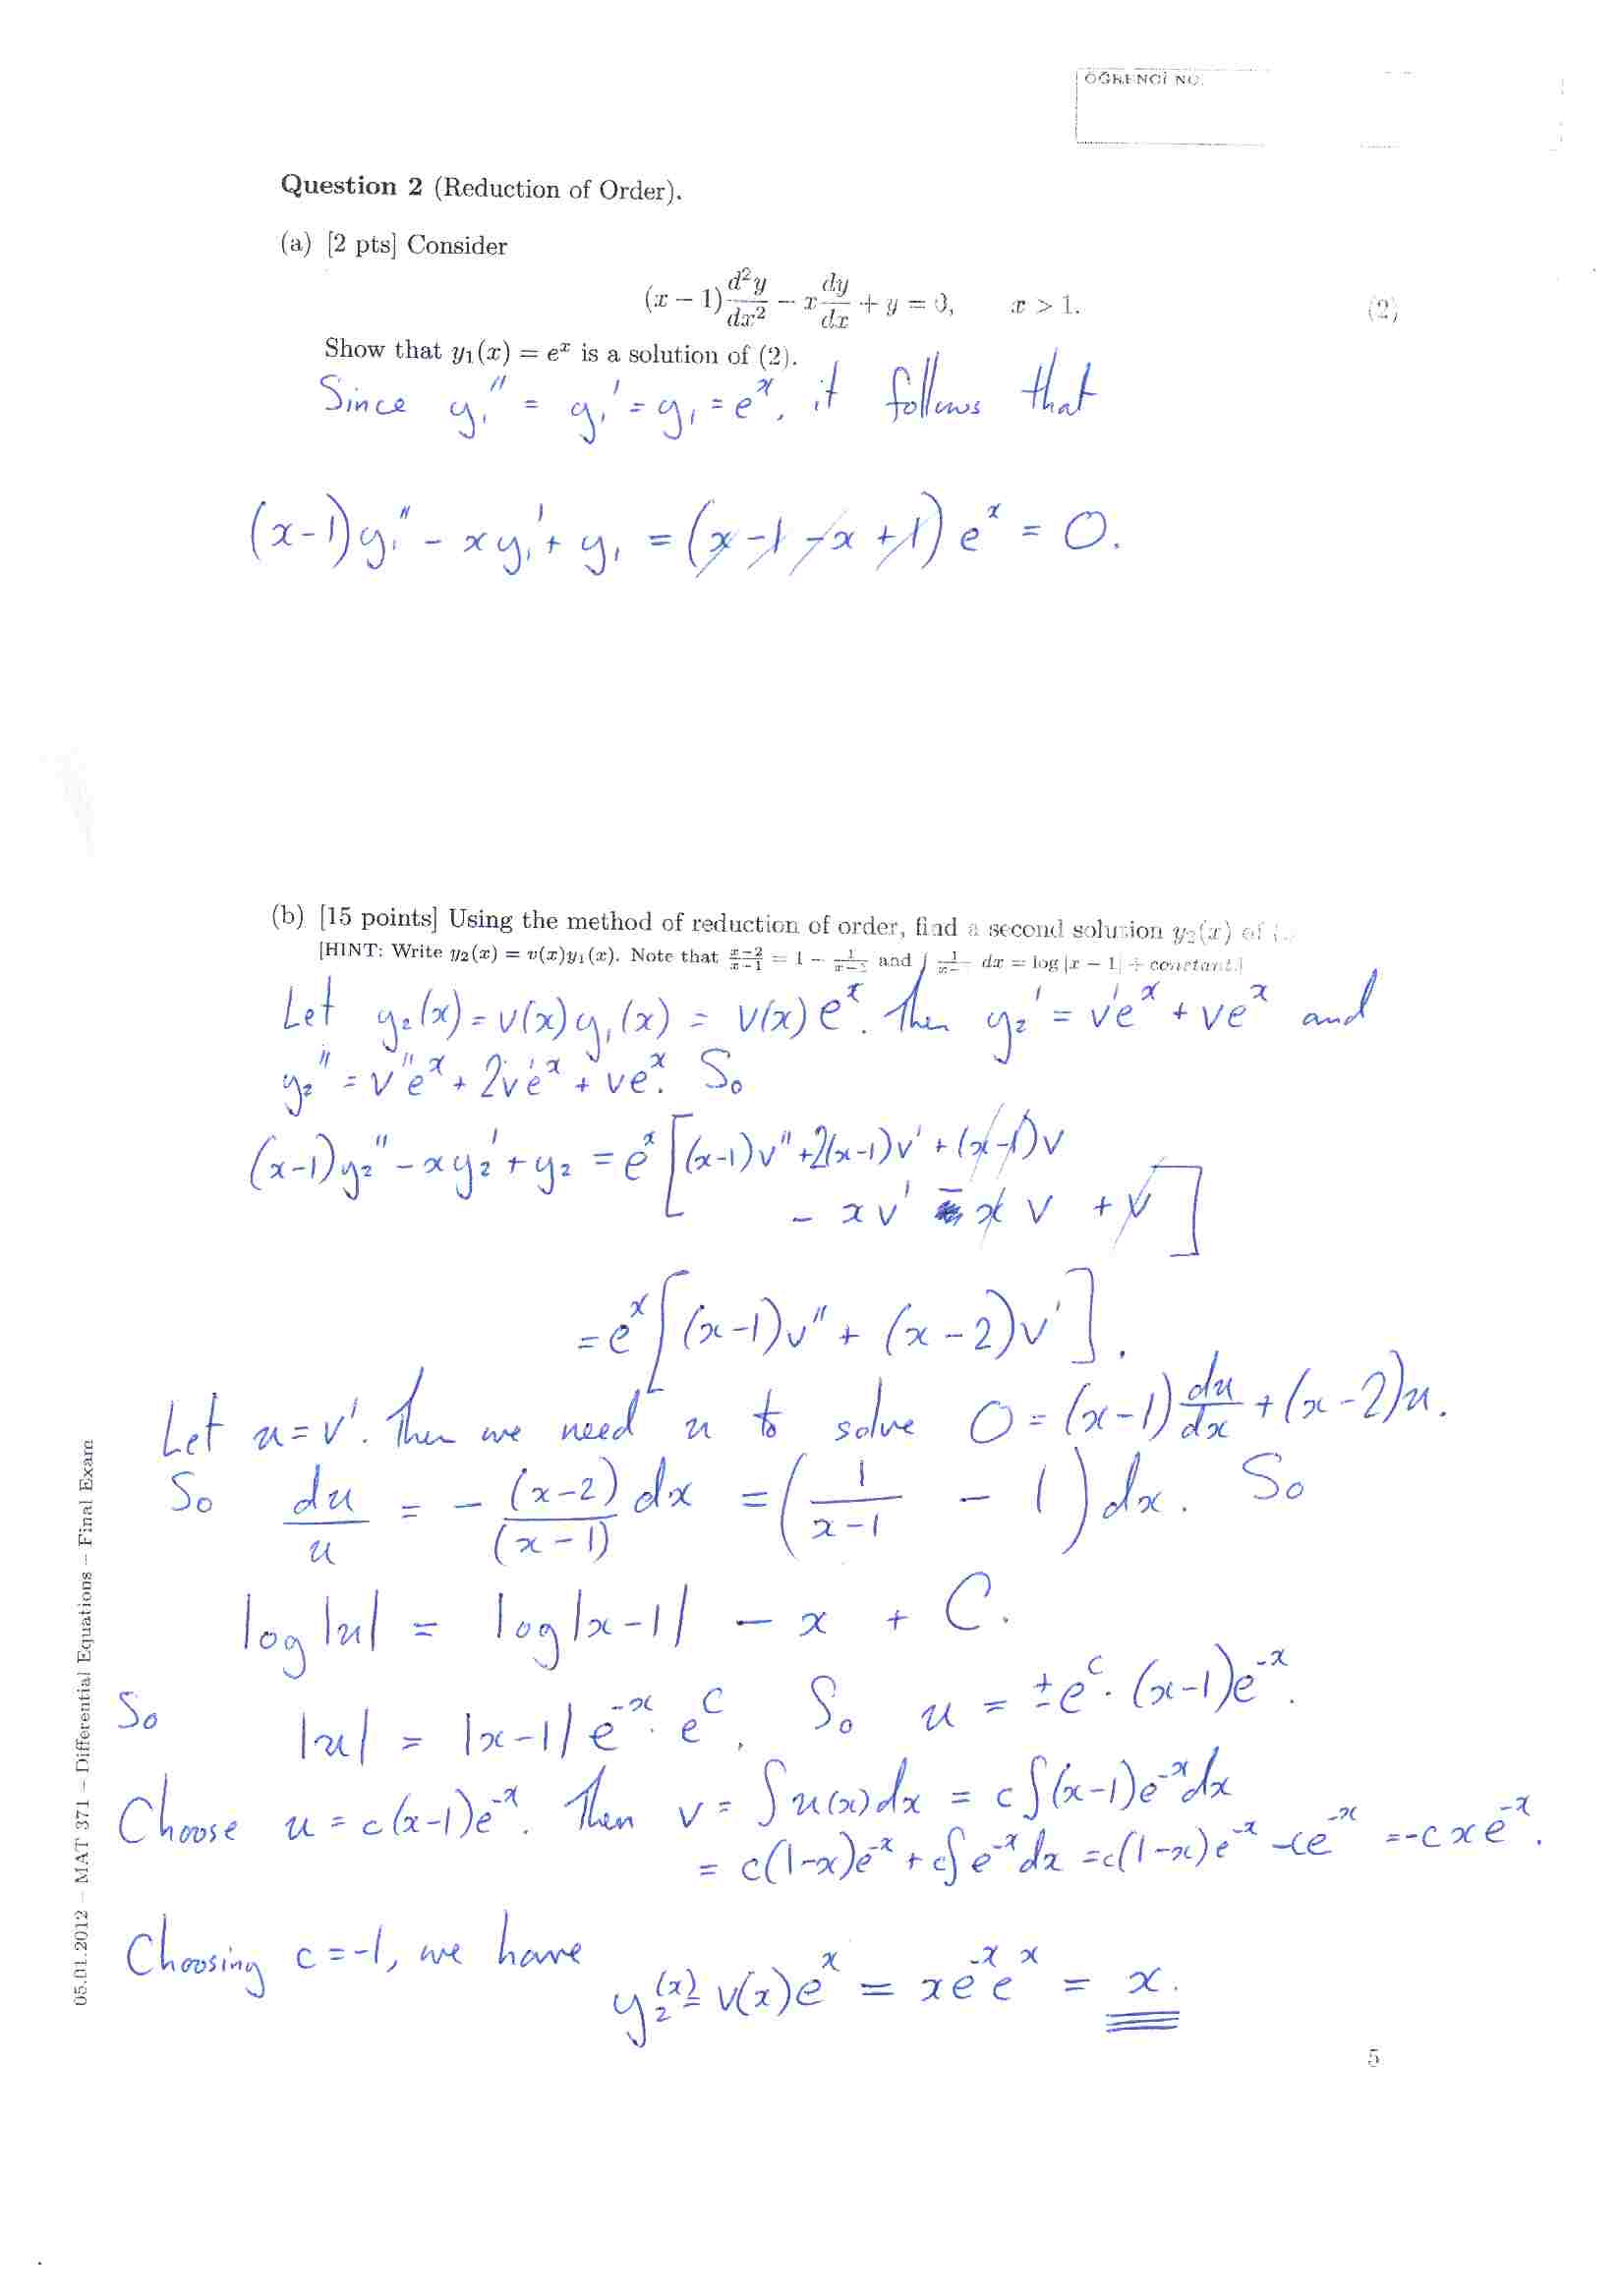 ÖĞRENCİ NO.
Question 2 (Reduction of Order).
(a) [2 pts] Consider
(x − 1) d²y/dx² − x dy/dx + y = 0, x > 1. (2)
Show that y₁(x) = eˣ is a solution of (2).
Since y₁'' = y₁' = y₁ = eˣ, it follows that
(x-1)y₁'' - xy₁' + y₁ = (x - 1 - x + 1) eˣ = 0.
(b) [15 points] Using the method of reduction of order, find a second solution y₂(x) of
[HINT: Write y₂(x) = v(x)y₁(x). Note that (x−2)/(x−1) = 1 − 1/(x−1) and ∫ 1/(x−1) dx = log |x − 1| + constant.]
Let y₂(x) = v(x)y₁(x) = v(x)eˣ. Then y₂' = v'eˣ + veˣ and
y₂'' = v''eˣ + 2v'eˣ + veˣ. So
(x-1)y₂'' - xy₂' + y₂ = eˣ[(x-1)v'' + 2(x-1)v' + (x-1)v
- xv' - xv + v]
= eˣ[(x-1)v'' + (x-2)v'].
Let u = v'. Then we need u to solve 0 = (x-1) du/dx + (x-2)u.
So du/u = - (x-2)/(x-1) dx = (1/(x-1) - 1) dx. So
log|u| = log|x-1| - x + C.
So |u| = |x-1| e⁻ˣ · e^C. So u = ±e^C · (x-1)e⁻ˣ.
Choose u = c(x-1)e⁻ˣ. Then v = ∫u(x)dx = c∫(x-1)e⁻ˣdx
= c(1-x)e⁻ˣ + c∫e⁻ˣdx = c(1-x)e⁻ˣ - ce⁻ˣ = -cxe⁻ˣ.
Choosing c = -1, we have
y₂(x) = v(x)eˣ = xe⁻ˣeˣ = x.
05.01.2012 – MAT 371 – Differential Equations – Final Exam
5